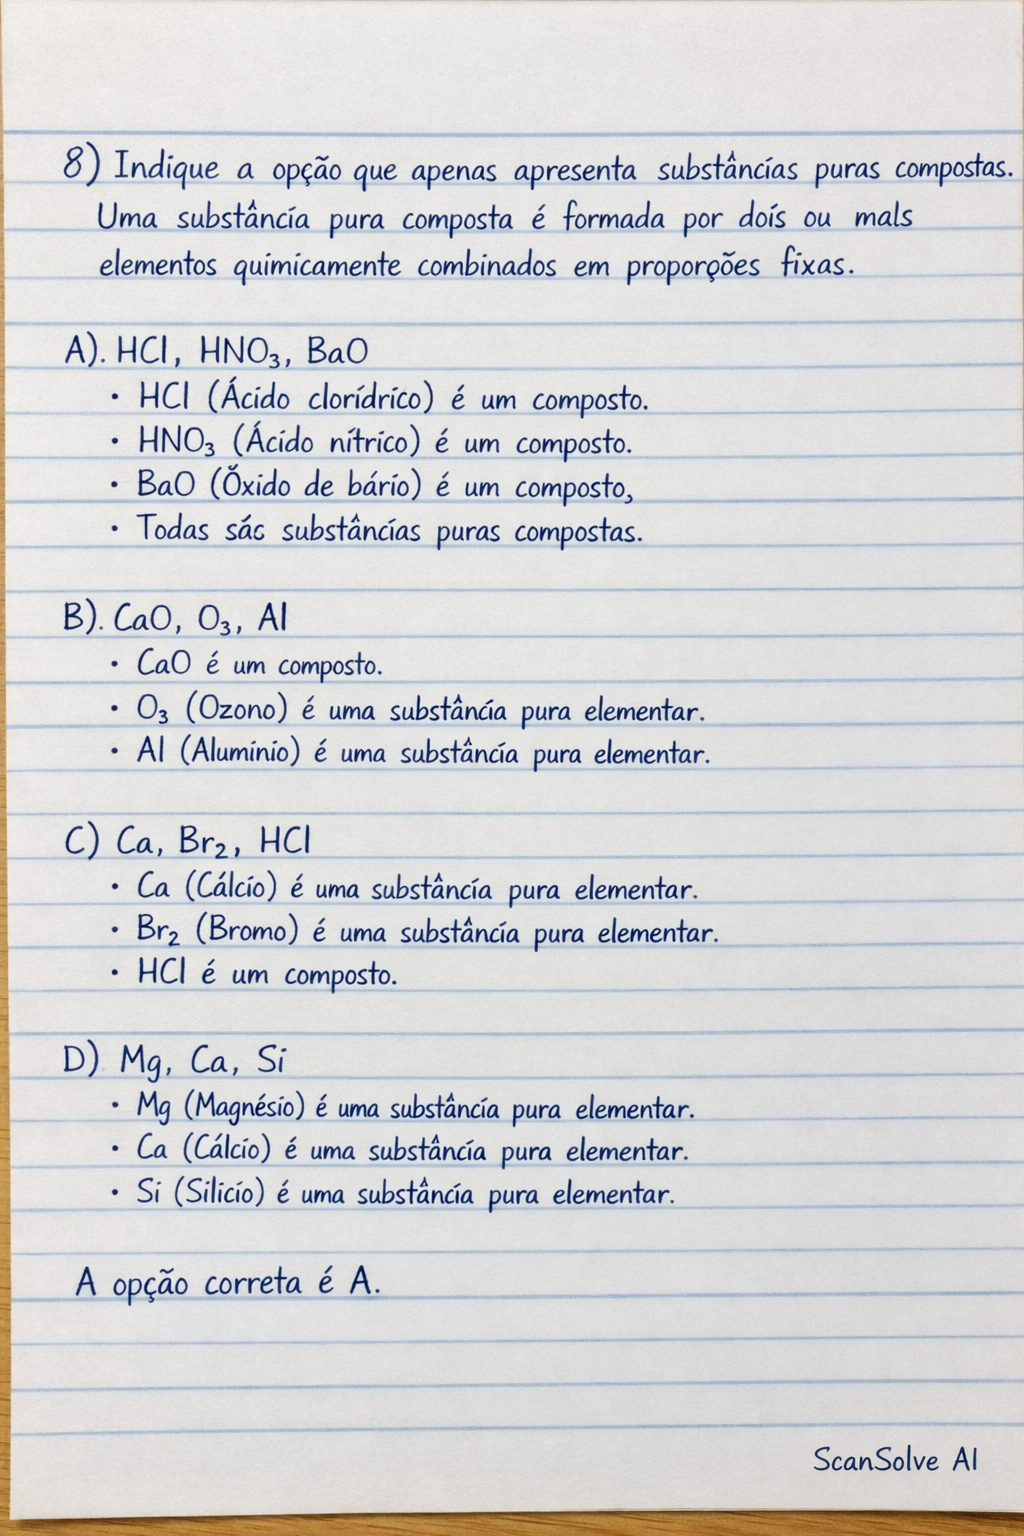 8) Indique a opção que apenas apresenta substâncías puras compostas.
Uma substâncía pura composta é formada por doís ou mals
elementos quimicamente combinados em proporções fixas.
A). HCl, HNO₃, BaO
• HCl (Ácido clorídrico) é um composto.
• HNO₃ (Ácido nítrico) é um composto.
• BaO (Óxido de bário) é um composto,
• Todas sác substâncías puras compostas.
B). CaO, O₃, Al
• CaO é um composto.
• O₃ (Ozono) é uma substâncía pura elementar.
• Al (Aluminio) é uma substâncía pura elementar.
C) Ca, Br₂, HCl
• Ca (Cálcío) é uma substâncía pura elementar.
• Br₂ (Bromo) é uma substâncía pura elementar.
• HCl é um composto.
D) Mg, Ca, Si
• Mg (Magnésío) é uma substâncía pura elementar.
• Ca (Cálcío) é uma substâncía pura elementar.
• Sí (Silicío) é uma substâncía pura elementar.
A opção correta é A.
ScanSolve AI